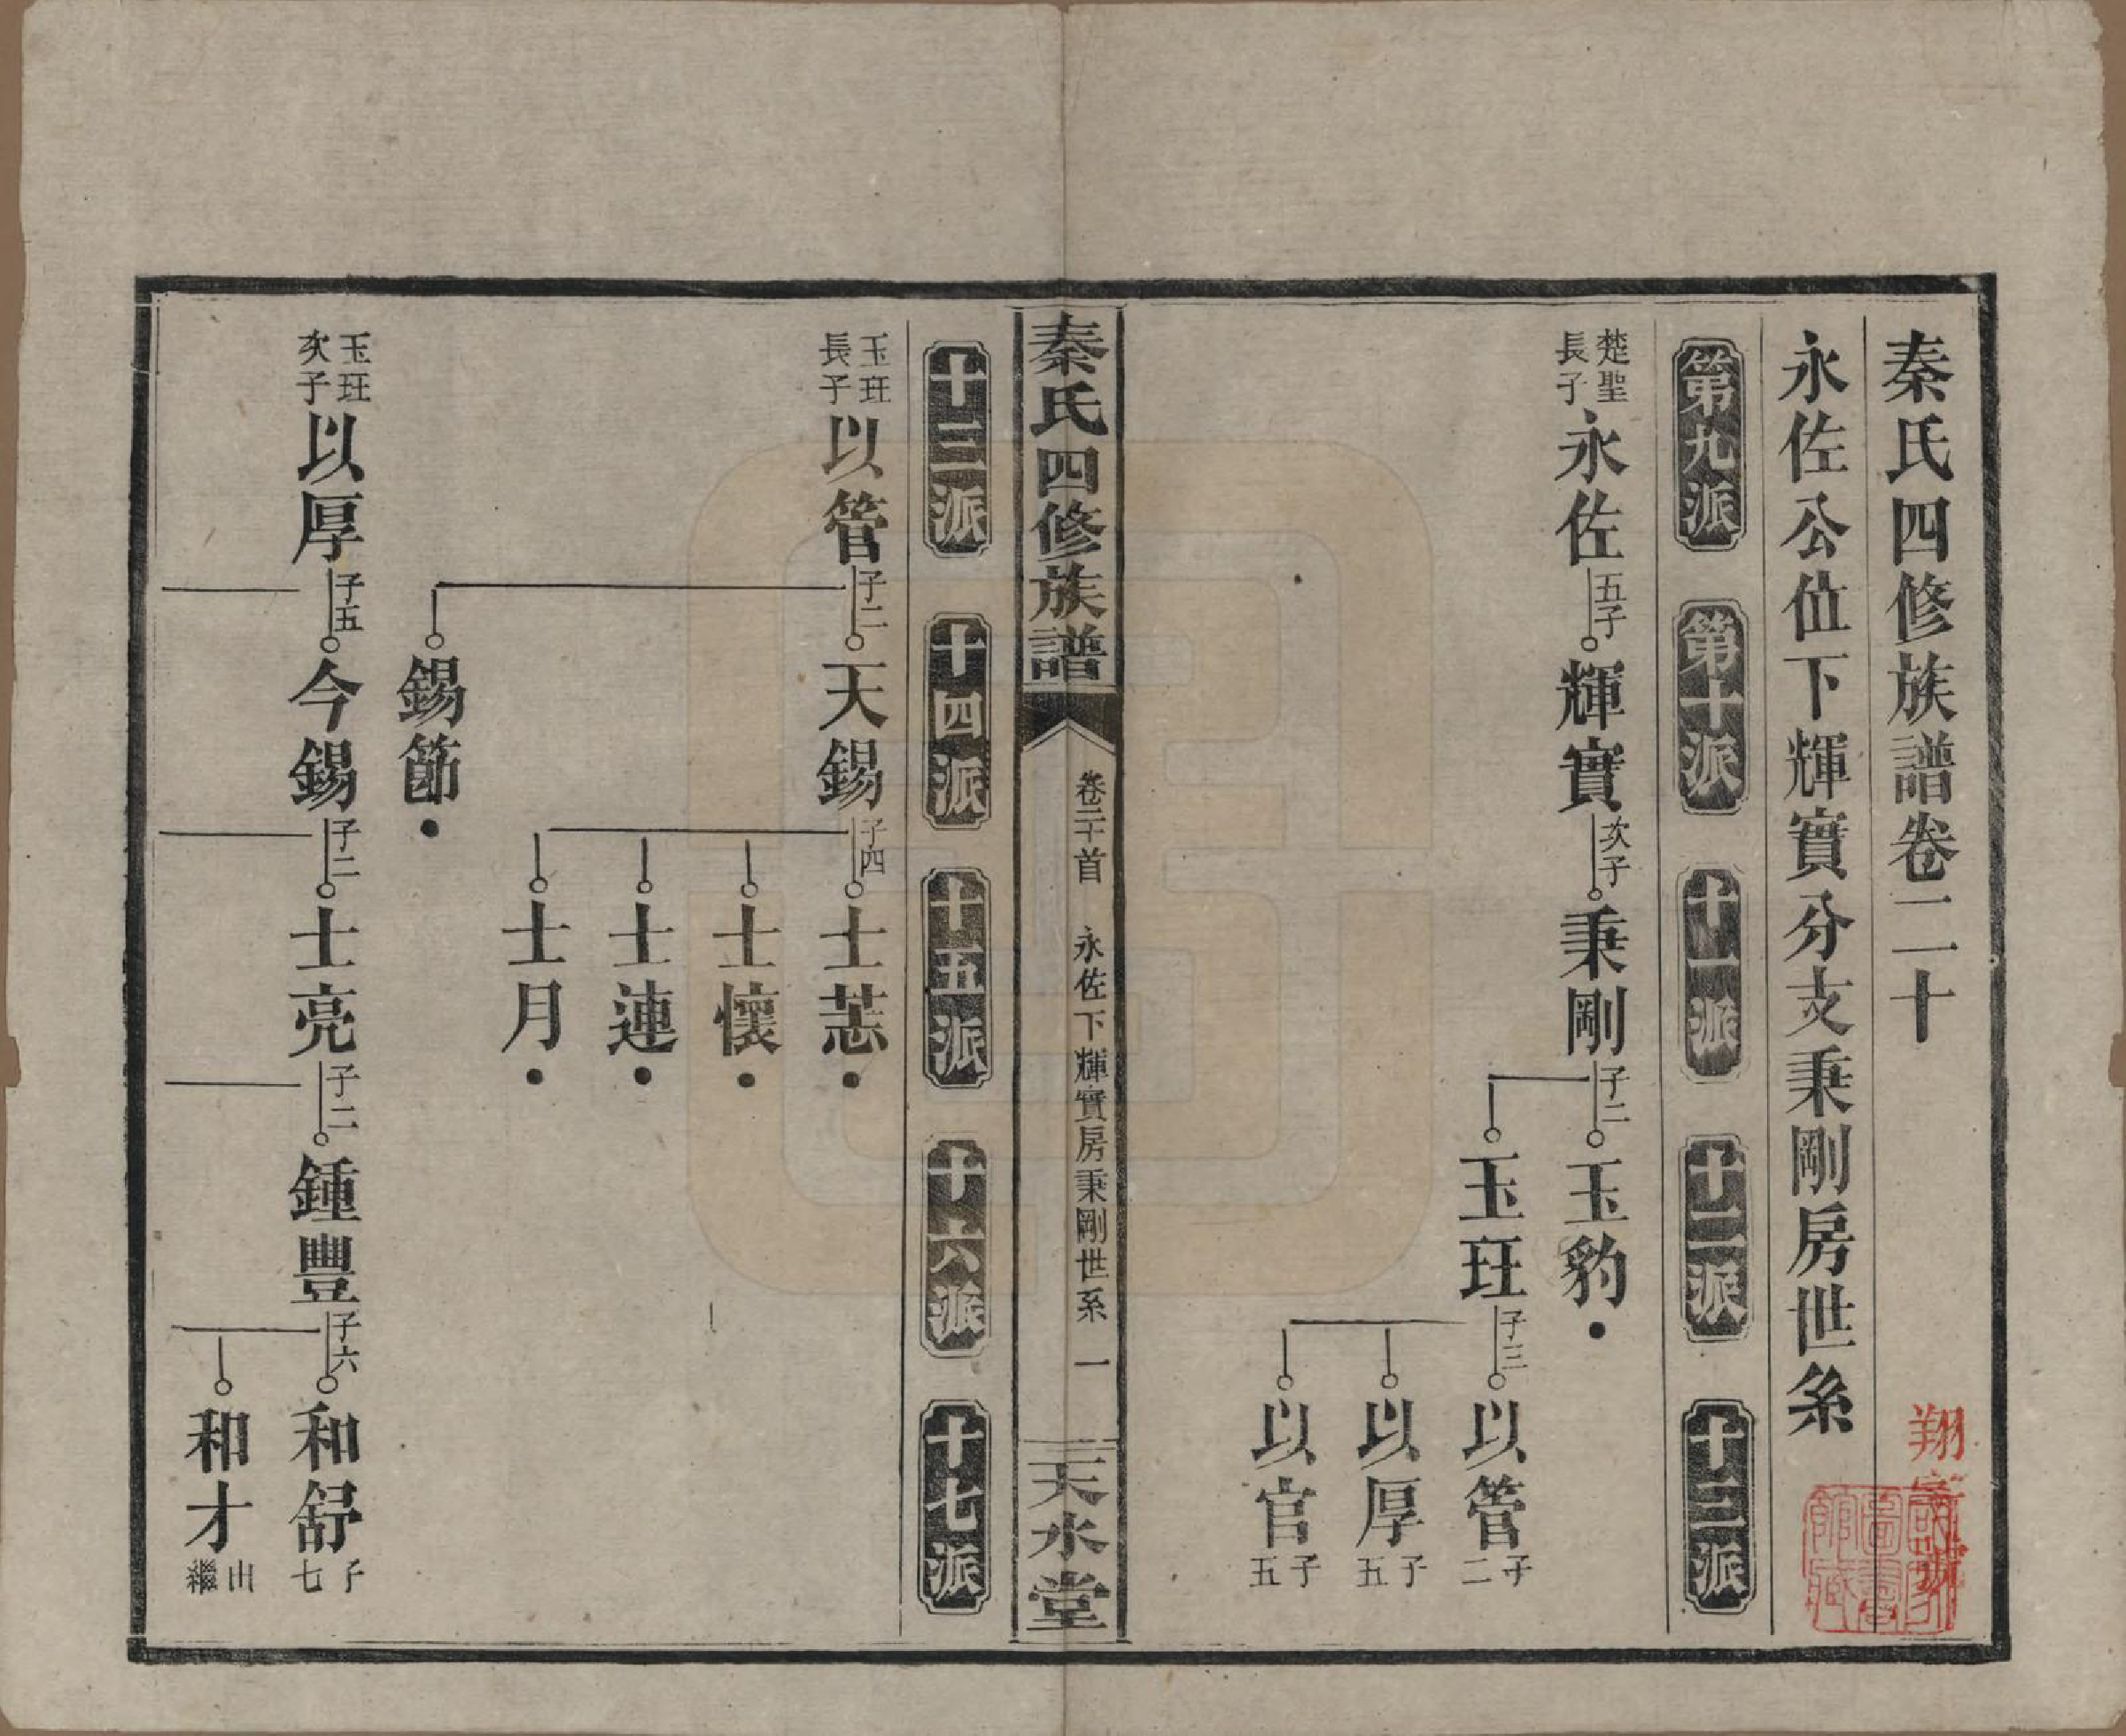 秦氏四修族譜卷二十
永佐公位下輝實分支秉剛房世系
第九派
第十派
十一派
十二派
十三派
楚聖
長子
永佐
五子
輝實
次子
秉剛
子二
玉豹
玉玨
子三
以管
子二
以厚
子五
以官
子五
秦氏四修族譜
卷二十首
永佐下輝實房秉剛世系
一
天水堂
十三派
十四派
十五派
十六派
十七派
玉玨
長子
以管
子二
天錫
子四
士懷
士連
士月
錫節
玉玨
次子
以厚
子五
今錫
子二
士亮
子二
鍾豐
子六
和舒
子七
和才
出繼